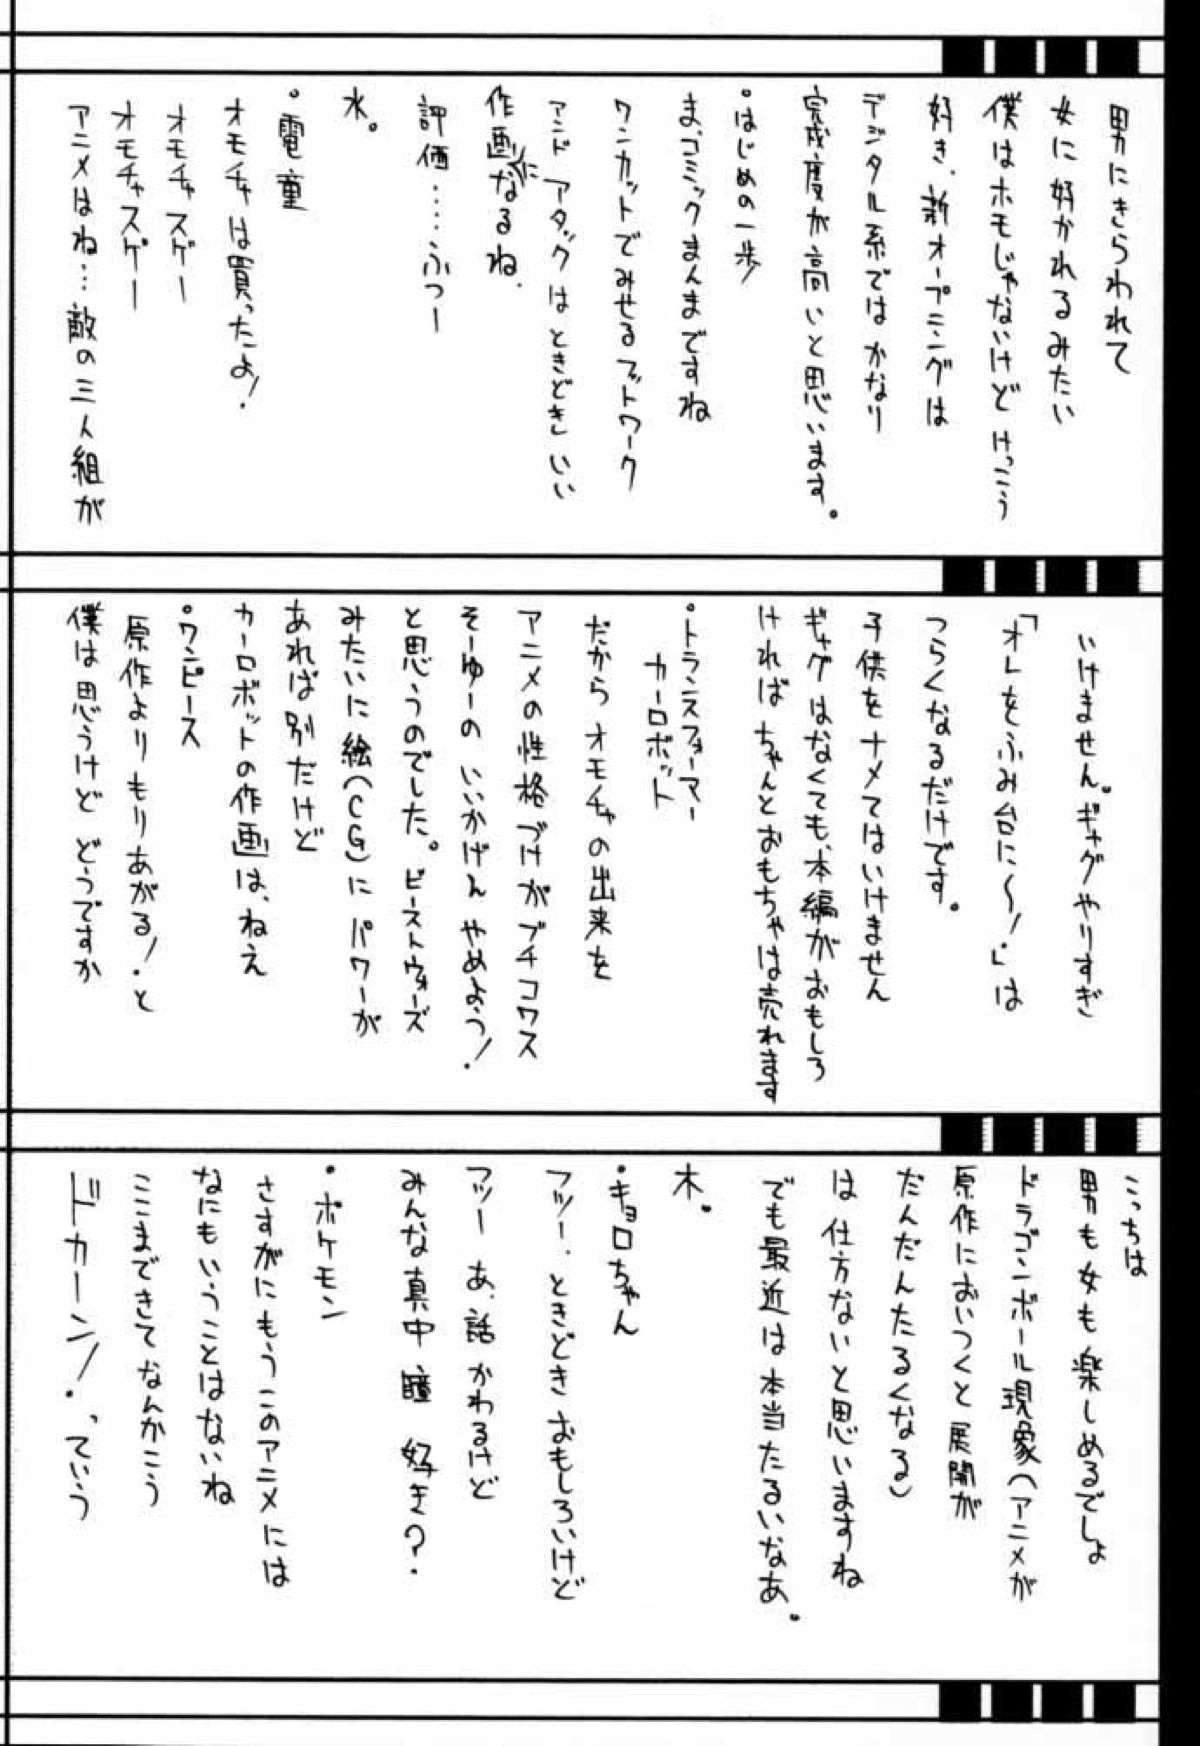 男にきらわれて
女に好かれるみたい
僕はホモじゃないけど けっこう
好き、新オープニングは
デジタル系では かなり
完成度が高いと思います。
・はじめの一歩
ま、コミックまんまですね
ワンカットでみせるフットワーク
アンド アタックは ときどき いい
作画になるね、
評価……ふつー
水。
・電童
オモチャは買ったよ!
オモチャスゲー
オモチャスゲー
アニメはね…敵の三人組が
いけません。ギャグやりすぎ
「オレをふみ台に〜!」は
つらくなるだけです。
子供をナメてはいけません
ギャグはなくても、本編がおもしろ
ければ ちゃんとおもちゃは売れます
・トランスフォーマー
カーロボット
だから オモチャの出来を
アニメの性格づけがブチコワス
そーゆーの いいかげん やめよう!
と思うのでした。ビーストウォーズ
みたいに絵(CG)に パワーが
あれば 別だけど
カーロボットの作画は、ねえ
・ワンピース
原作よりもりあがる!と
僕は思うけど どうですか
こっちは
男も女も楽しめるでしょ
ドラゴンボール現象(アニメが
原作においつくと 展開が
だんだんたるくなる)
は 仕方ないと思いますね
でも最近は 本当たるいなあ。
木。
・キョロちゃん
フツー、ときどき おもしろいけど
フツー あ、話 かわるけど
みんな真中 瞳 好き?
・ポケモン
さすがにもうこのアニメには
なにもいうことはないね
ここまできてなんかこう
ドカーン!っていう